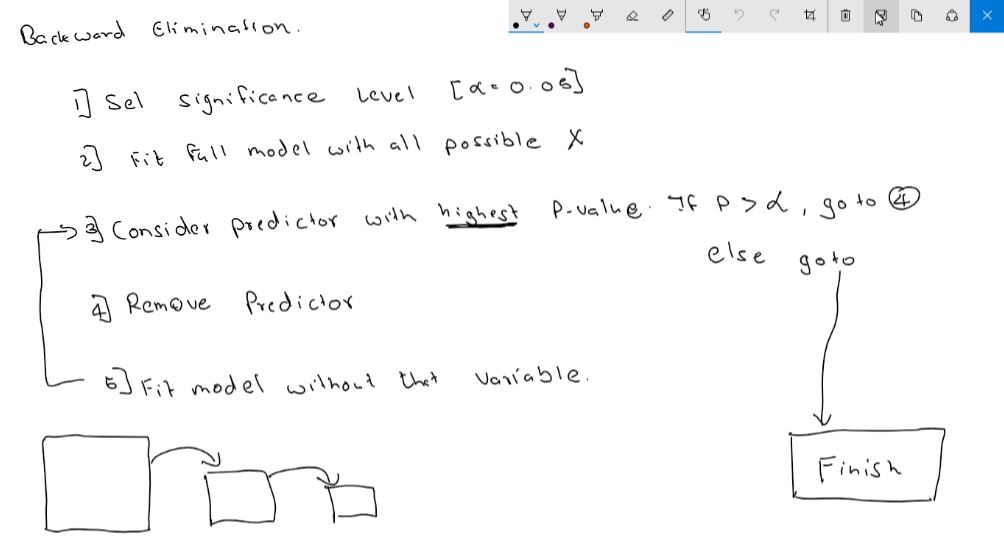 Backward Elimination.
1] Sel significance Level [α = 0.05]
2] Fit Full model with all possible X
3] Consider predictor with highest P-value. If P > α, go to ④
else goto
4] Remove Predictor
5] Fit model without that variable.
Finish